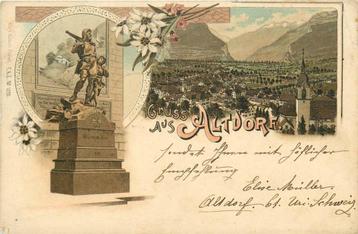 Gruss
aus
Altdorf
sendet Ihnen mit höflicher
Empfehlung
Elise Müller.
Altdorf. Ct. Uri. Schweiz.